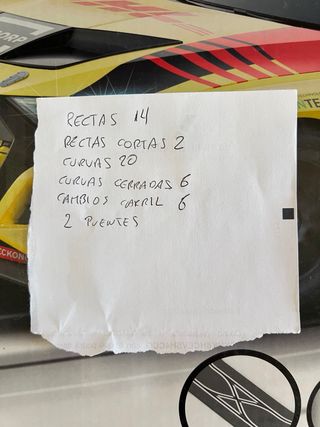 CORP
TE
RECTAS 14
RECTAS CORTAS 2
CURVAS 20
CURVAS CERRADAS 6
CAMBIOS CARRIL 6
2 PUENTES
RECKON